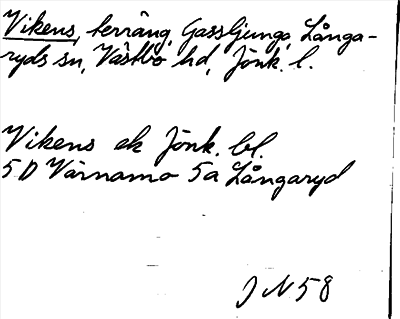 Vikens, terräng, Gassljunga, Långa-
ryds sn, Västbo hd, Jönk. l.
Vikens ek Jönk. bl.
5D Värnamo 5a Långaryd
J N 58